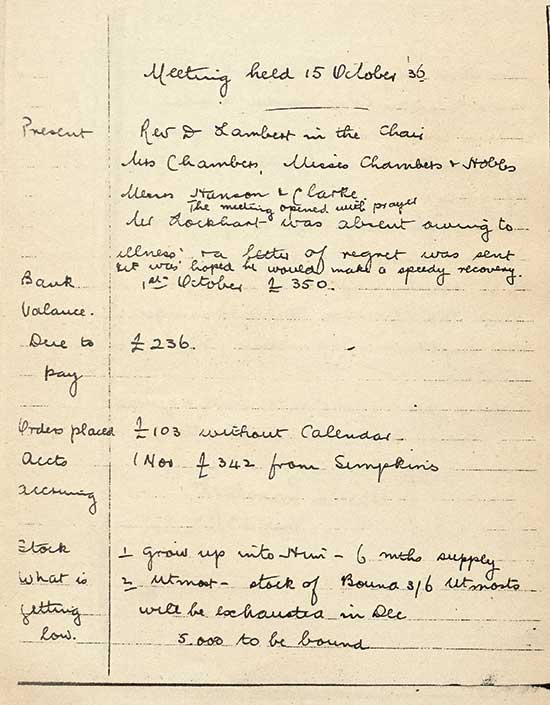 Meeting held 15 October '36
Present Rev D Lambert in the Chair
Mrs Chambers, Misses Chambers & Hobbs
Messrs Hanson & Clarke
The meeting opened with prayer
Mr Lockhart was absent owing to
illness & a letter of regret was sent
& it was hoped he would make a speedy recovery.
Bank 1st October £350.
Balance.
Due to £236.
pay
Orders placed £103 without Calendar
Accts 1 Nov £342 from Simpkins
accruing
Stock 1 Grow up into Him - 6 mths supply
What is 2 Utmost - stock of Bound 3/6 Utmosts
getting will be exhausted in Dec
low. 5.000 to be bound